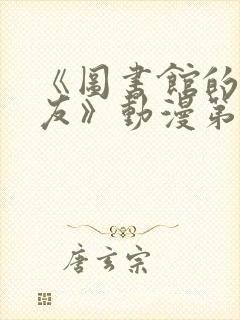 《圖書館的
友》動漫第
唐玄宗